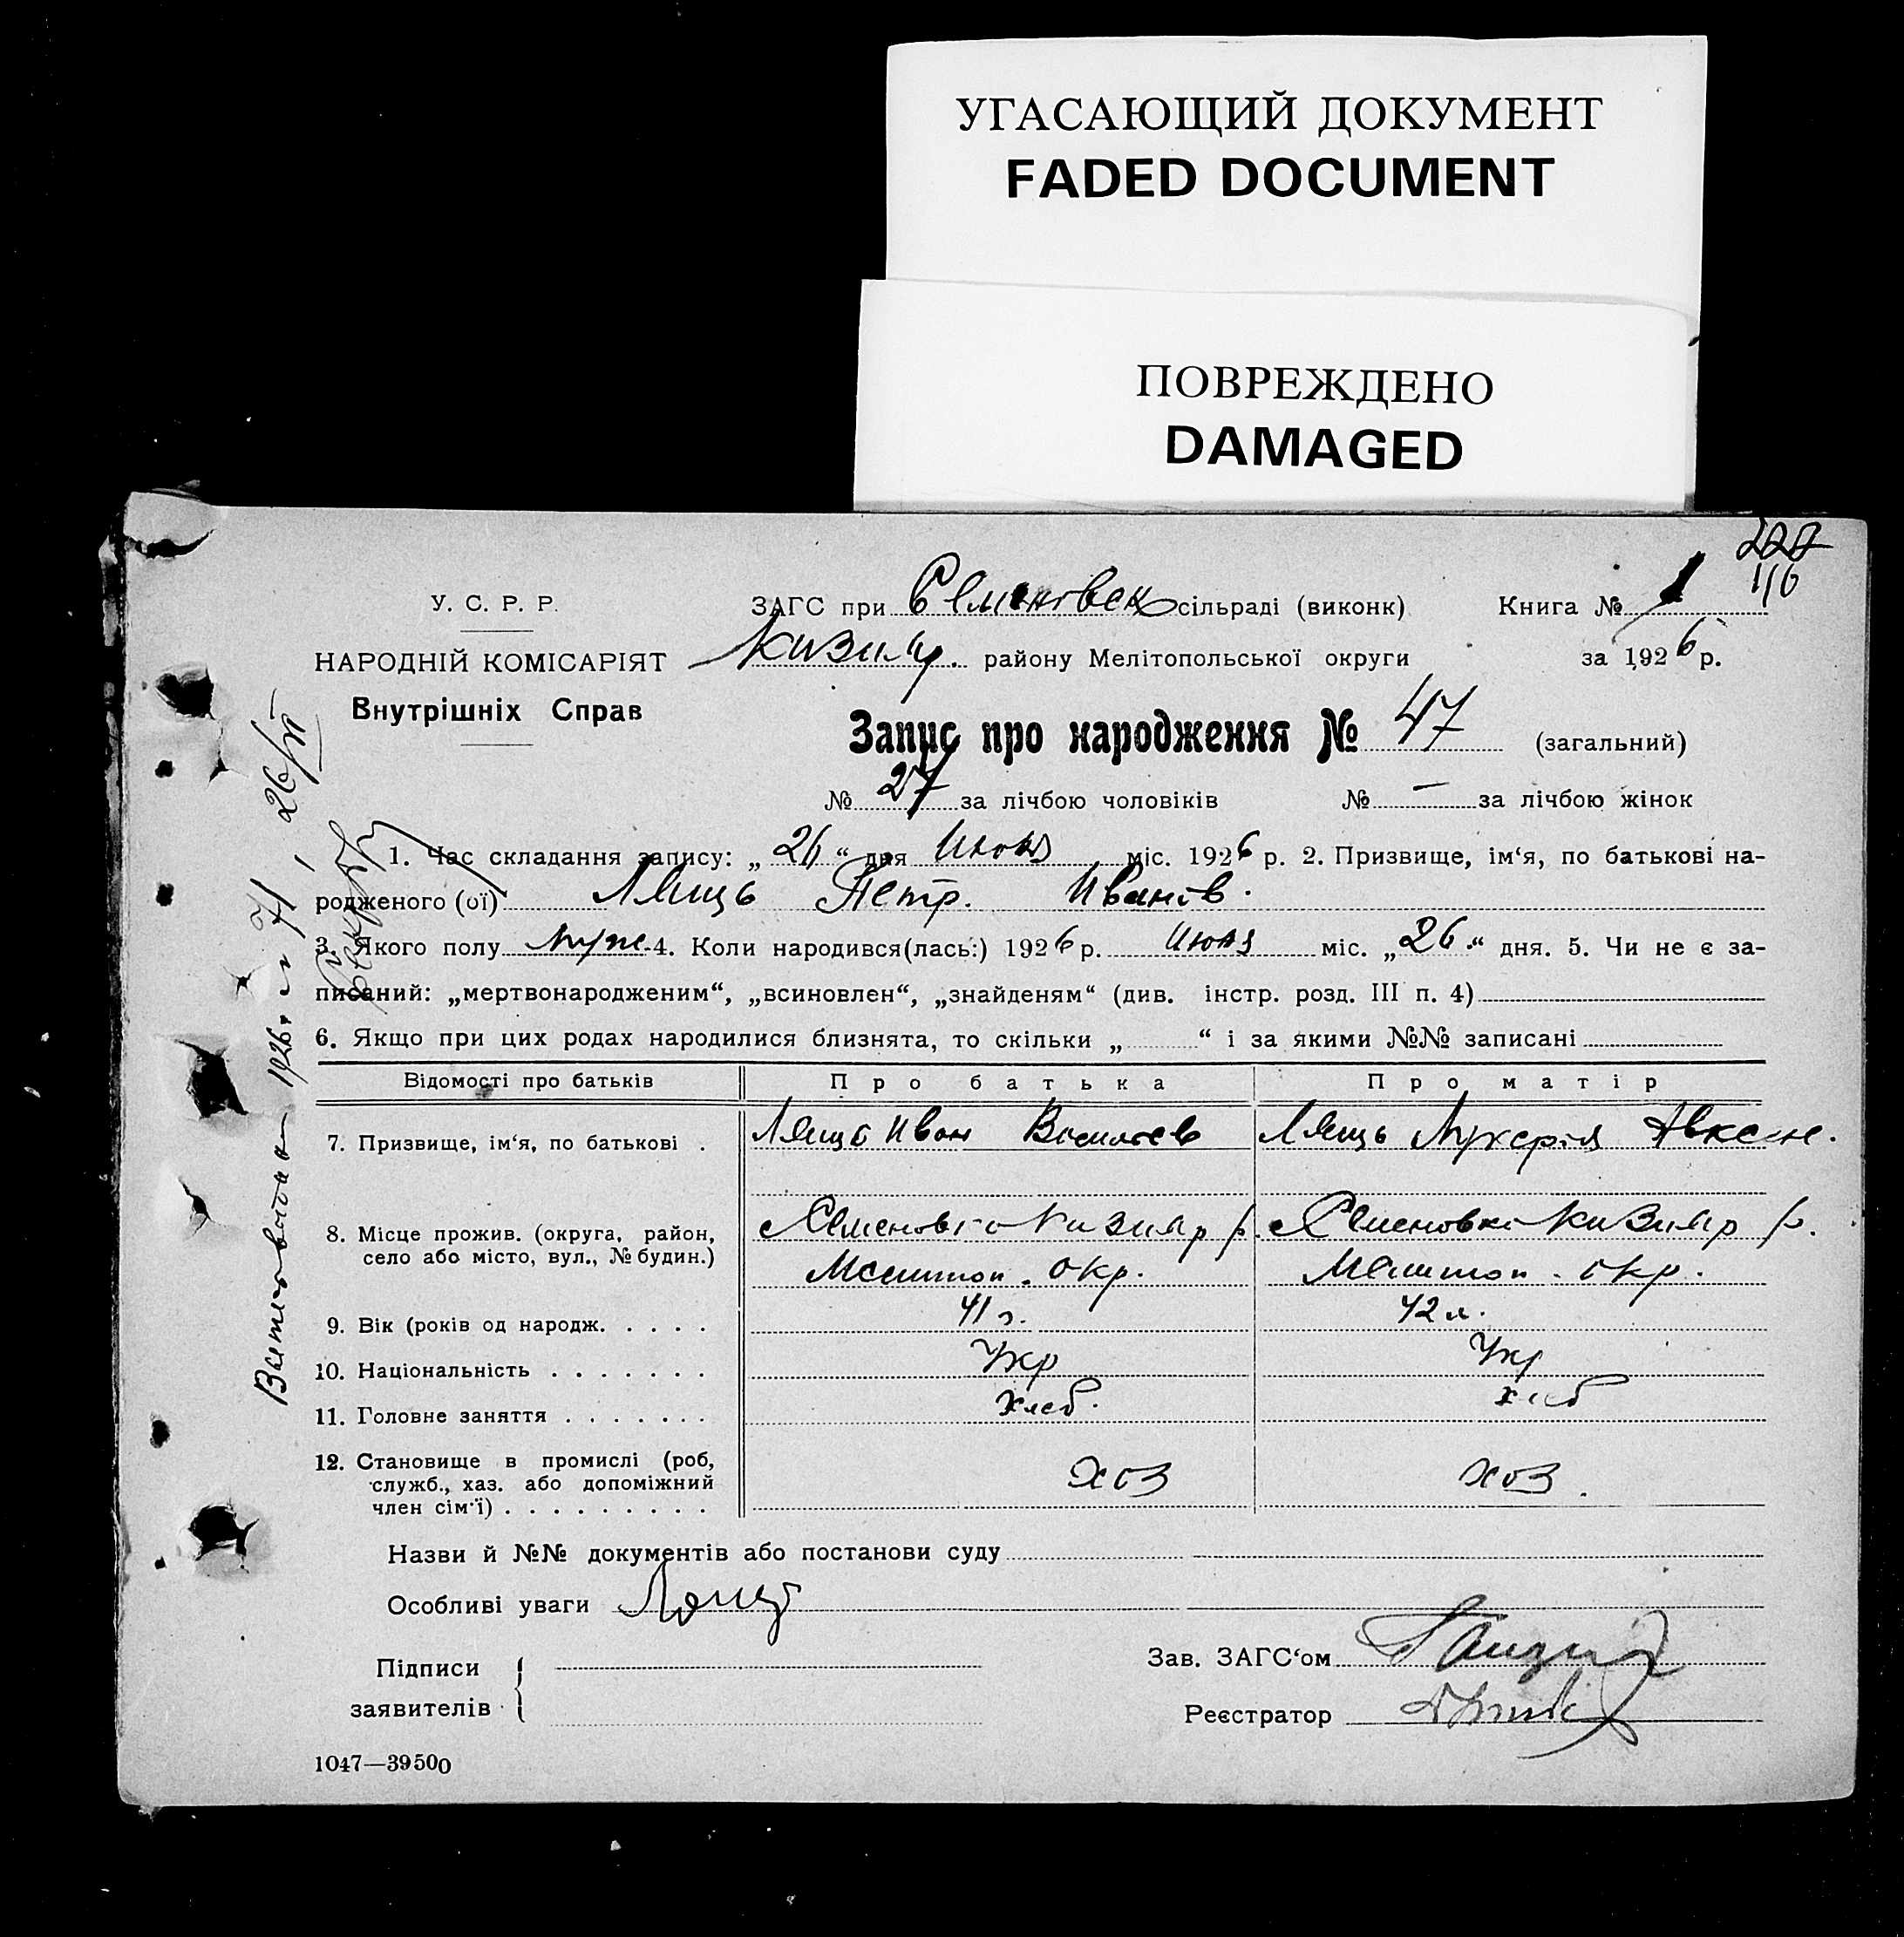 УГАСАЮЩИЙ ДОКУМЕНТ
FADED DOCUMENT
ПОВРЕЖДЕНО
DAMAGED
116
У. С. Р. Р.
НАРОДНІЙ КОМІСАРІЯТ
Внутрішніх Справ
ЗАГС при Семеновск сільраді (виконк) Книга № 1
Кизияр. району Мелітопольської округи за 1926 р.
Запис про народження № 47 (загальний)
№ 27 за лічбою чоловіків № — за лічбою жінок
1. Час складання запису: „ “ дня Июня міс. 1926 р. 2. Призвище, ім‘я, по батькові на-
родженого (ої) Лящь Петр. Иванов.
3. Якого полу муж 4. Коли народився(лась:) 1926 р. Июня міс. „26“ дня. 5. Чи не є за-
писаний: „мертвонародженим“, „всиновлен“, „знайденям“ (див. інстр. розд. III п. 4)
6. Якщо при цих родах народилися близнята, то скільки „ “ і за якими №№ записані
Відомості про батьків Про батька Про матір
7. Призвище, ім‘я, по батькові . Лящь Иван Васильев Лящь Лукерия Авксен.
8. Місце прожив. (округа, район, Семеновка Кизияр р. Семеновка Кизияр р.
село або місто, вул., № будин.) Мелитоп. окр. Мелитоп. окр.
9. Вік (років од народж. . . . . 41 г. 42 л.
10. Національність . . . . . . . Укр Укр
11. Головне заняття . . . . . . . хлеб. хлеб
12. Становище в промислі (роб,
служб., хаз. або допоміжний хоз хоз.
член сім‘ї) . . . . . . . . .
Назви й №№ документів або постанови суду
Особливі уваги Лящ
Підписи
заявителів
Зав. ЗАГС‘ом
Реєстратор
1047—39500